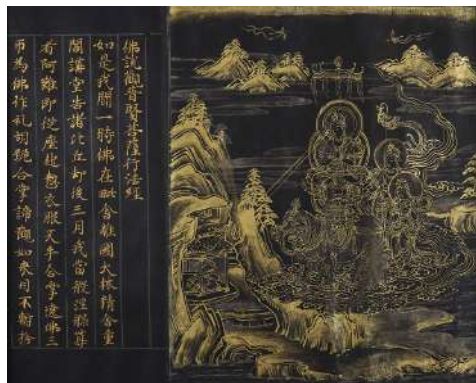 佛說觀普賢菩薩行法經
如是我聞一時佛在毗舍離國大林精舍重
閣講堂告諸比丘却後三月我當般涅槃尊
者阿難即從座起整衣服叉手合掌遶佛三
帀為佛作礼胡跪合掌諦觀如來目不暫捨